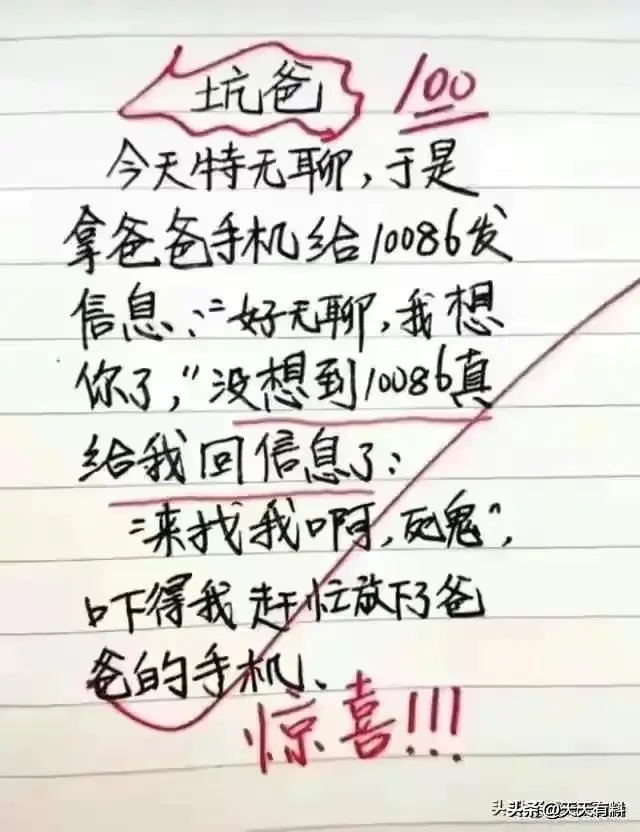 坑爸
100
今天特无聊，于是
拿爸爸手机给10086发
信息：“好无聊，我想
你了，”没想到10086真
给我回信息了：
“来找我啊，死鬼”，
吓得我赶忙放下了爸
爸的手机、
惊喜!!!
头条@天天有料